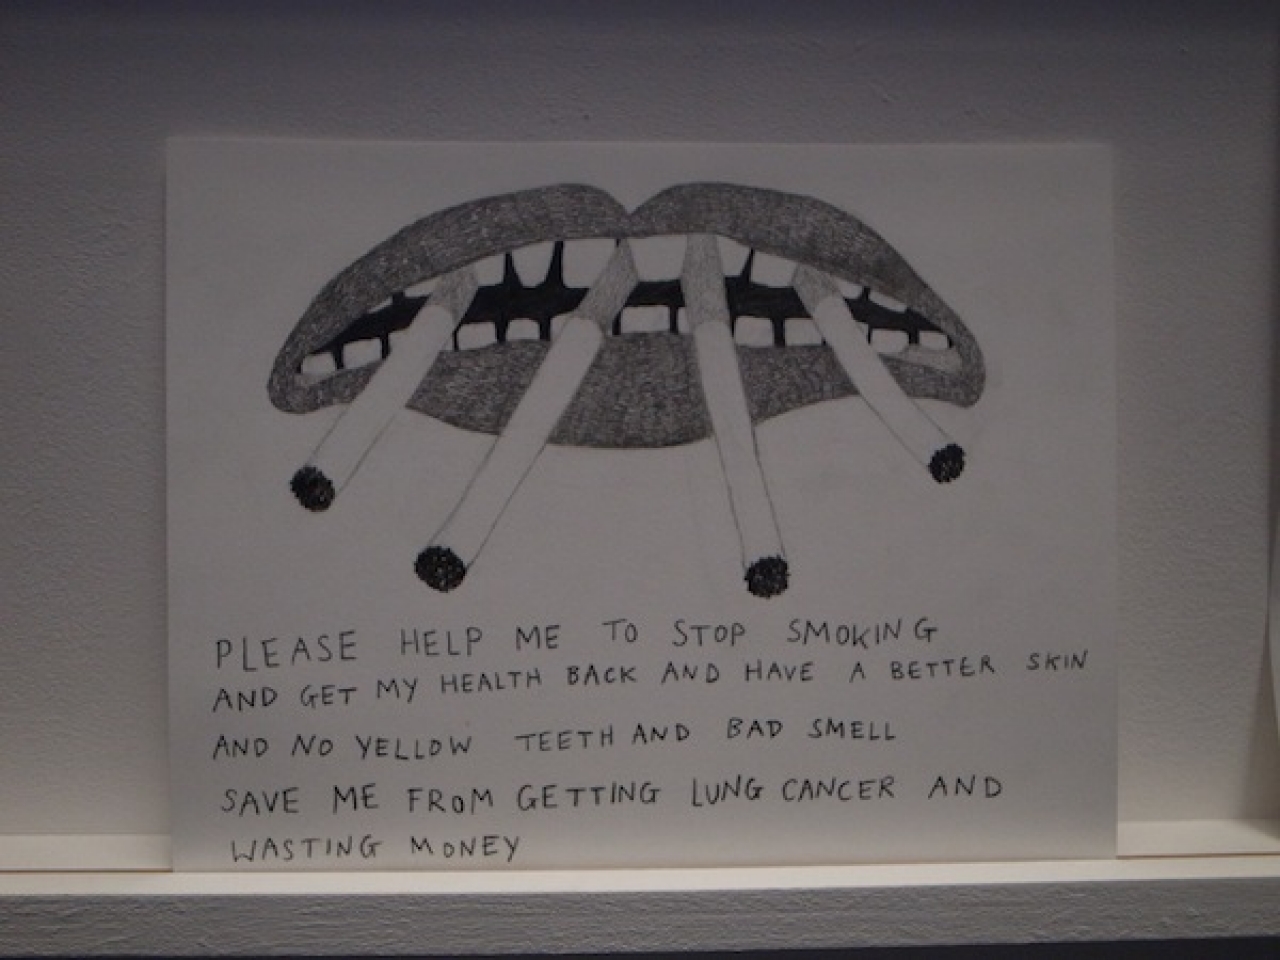 PLEASE HELP ME TO STOP SMOKING
AND GET MY HEALTH BACK AND HAVE A BETTER SKIN
AND NO YELLOW TEETH AND BAD SMELL
SAVE ME FROM GETTING LUNG CANCER AND
WASTING MONEY